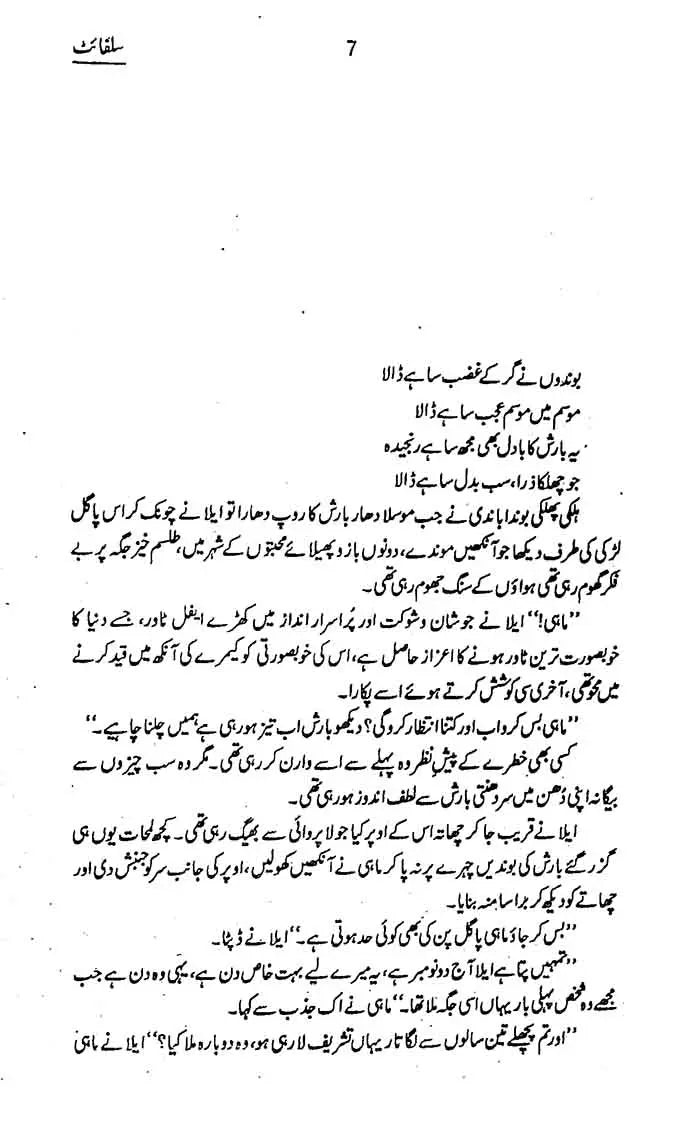 سلفائٹ
7
بوندوں نے گر کے غضب سا ہے ڈالا
موسم میں موسم عجب سا ہے ڈالا
یہ بارش کا بادل بھی مجھ سا ہے رنجیدہ
جو چھلکا ذرا، سب بدل سا ہے ڈالا
ہلکی پھلکی بوندا باندی نے جب موسلا دھار بارش کا روپ دھارا تو ایلا نے چونک کر اس پاگل
لڑکی کی طرف دیکھا جو آنکھیں موندے، دونوں بازو پھیلائے محبتوں کے شہر میں، طلسم خیز جگہ پر بے
فکر گھوم رہی تھی ہواؤں کے سنگ جھوم رہی تھی۔
’’ماہی!‘‘ ایلا نے جو شان و شوکت اور پُراسرار انداز میں کھڑے ایفل ٹاور، جسے دنیا کا
خوبصورت ترین ٹاور ہونے کا اعزاز حاصل ہے، اس کی خوبصورتی کو کیمرے کی آنکھ میں قید کرنے
میں محو تھی، آخری سی کوشش کرتے ہوئے اسے پکارا۔
’’ماہی بس کرو اب اور کتنا انتظار کرو گی؟ دیکھو بارش اب تیز ہو رہی ہے ہمیں چلنا چاہیے۔‘‘
کسی بھی خطرے کے پیشِ نظر وہ پہلے سے اسے وارن کر رہی تھی۔ مگر وہ سب چیزوں سے
بیگانہ اپنی دُھن میں سر دھنتی بارش سے لطف اندوز ہو رہی تھی۔
ایلا نے قریب جا کر چھاتہ اس کے اوپر کیا جو لاپروائی سے بھیگ رہی تھی۔ کچھ لمحات یوں ہی
گزر گئے بارش کی بوندیں چہرے پر نہ پا کر ماہی نے آنکھیں کھولیں، اوپر کی جانب سر کو جنبش دی اور
چھاتے کو دیکھ کر برا سا منہ بنایا۔
’’بس کر جاؤ ماہی پاگل پن کی بھی کوئی حد ہوتی ہے۔‘‘ ایلا نے ڈپٹا۔
’’تمہیں پتا ہے ایلا آج دو نومبر ہے، یہ میرے لیے بہت خاص دن ہے، یہی وہ دن ہے جب
مجھے وہ شخص پہلی بار یہاں اسی جگہ ملا تھا۔‘‘ ماہی نے اک جذب سے کہا۔
’’اور تم پچھلے تین سالوں سے لگاتار یہاں تشریف لا رہی ہو، وہ دوبارہ ملا کیا؟‘‘ ایلا نے ماہی